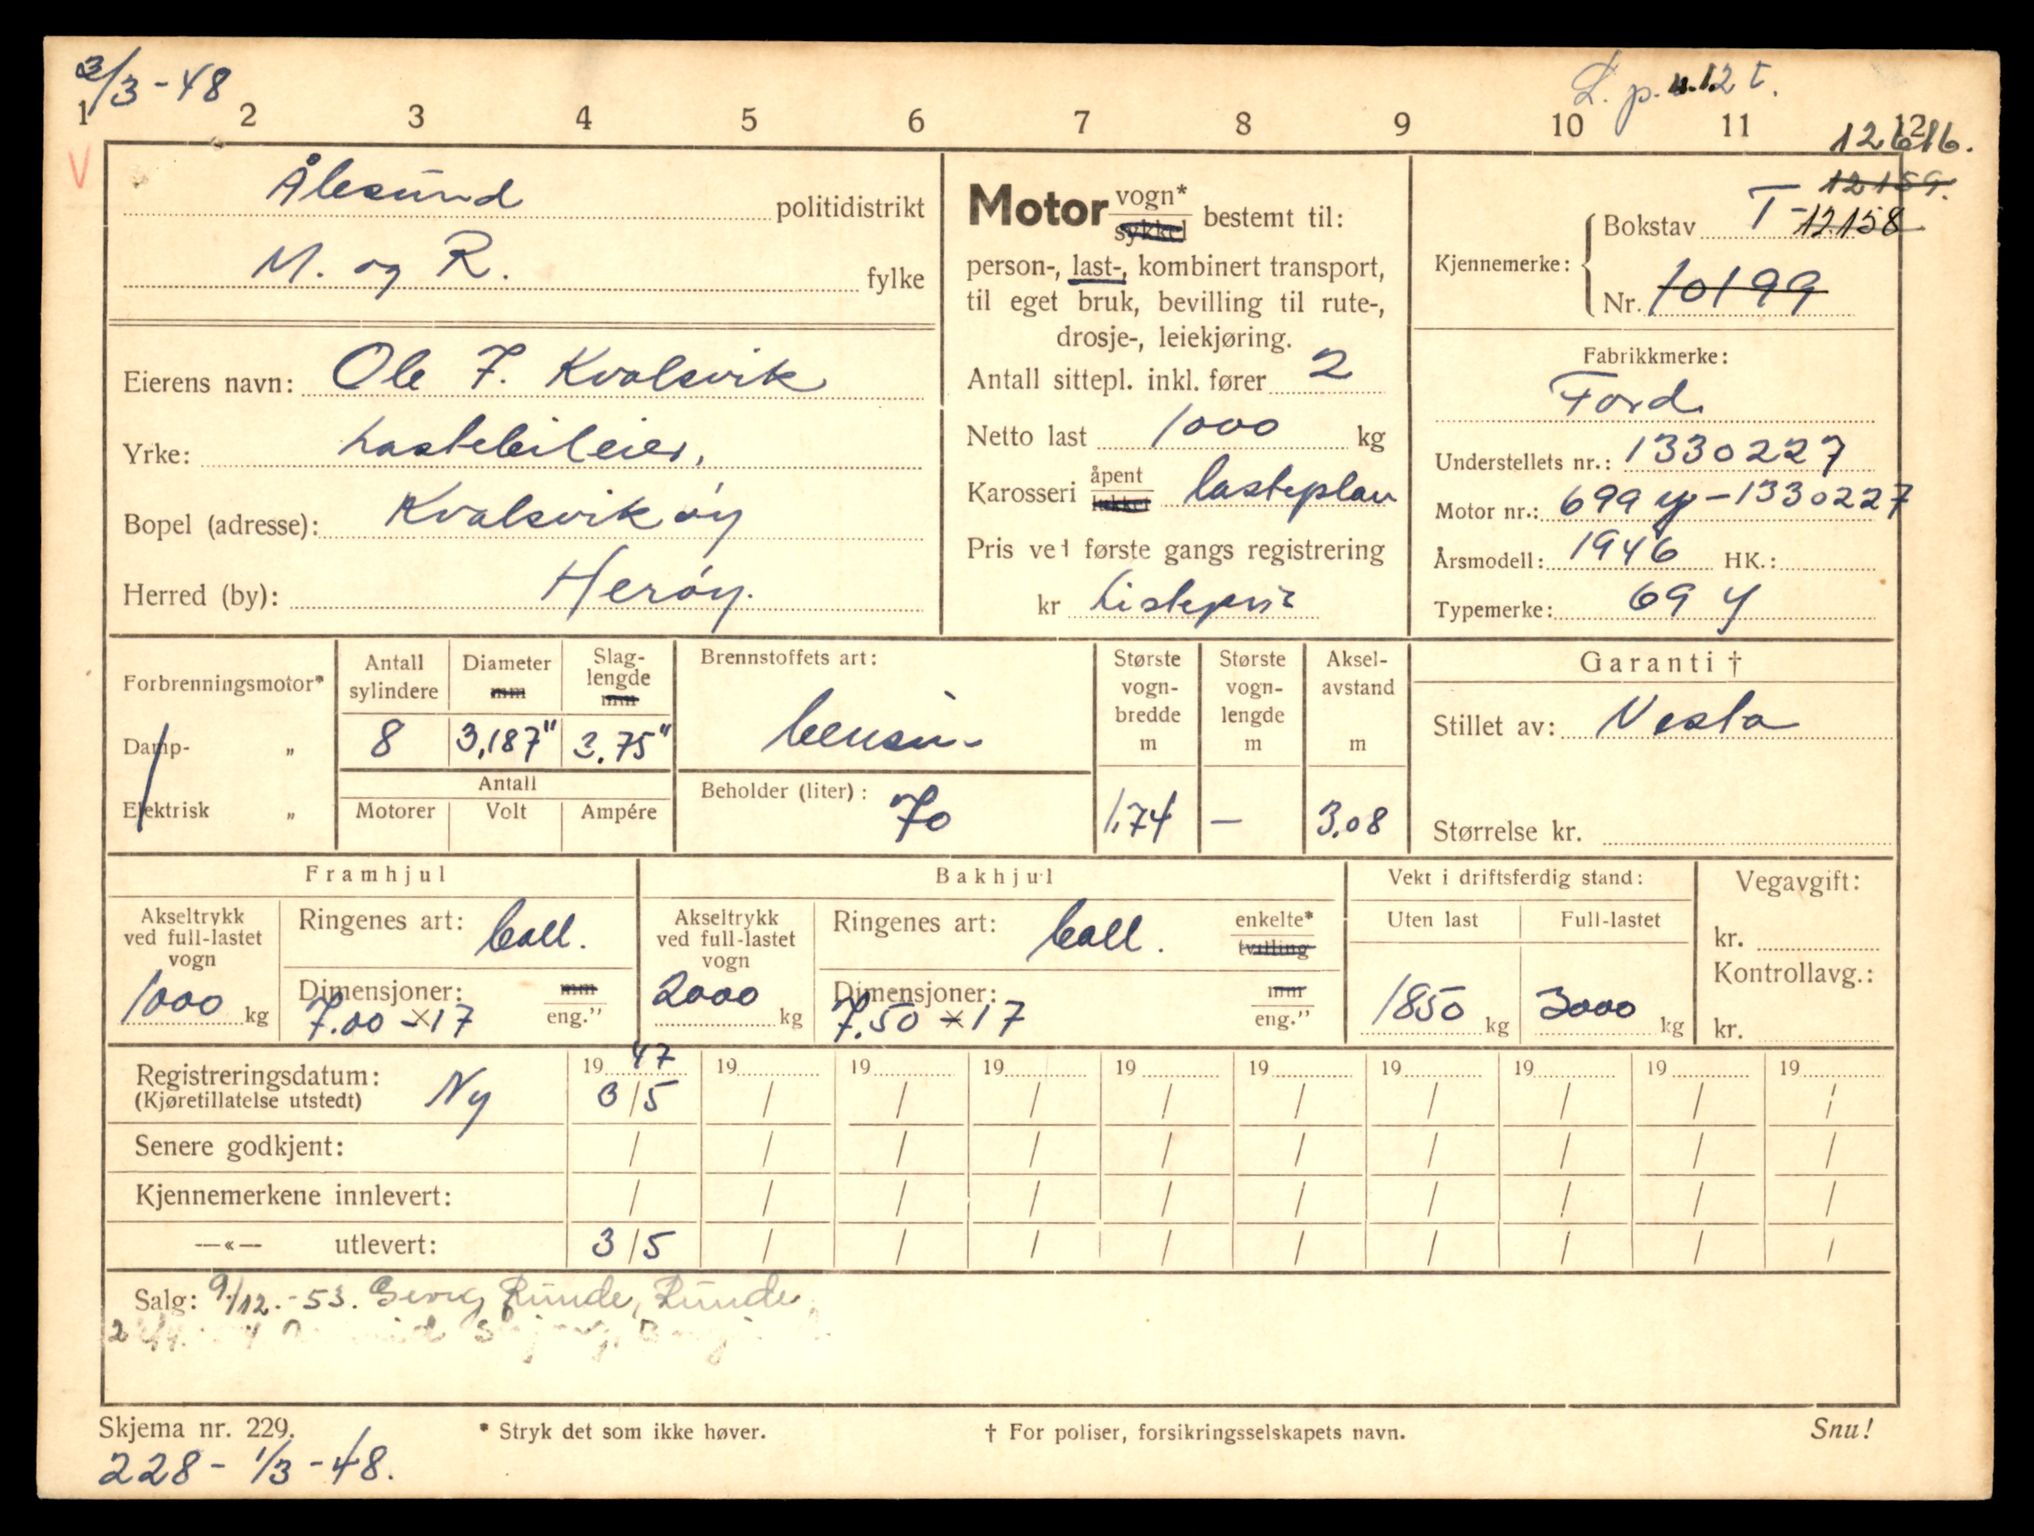 3/3-48
L. p. n. 12 t.
1 2 3 4 5 6 7 8 9 10 11 12
12616.
V
Ålesund politidistrikt
M. og R. fylke
Eierens navn: Ole F. Kvalsvik
Yrke: Lastebileier,
Bopel (adresse): Kvalsvikøy
Herred (by): Herøy.
Motor vogn* sykkel bestemt til:
person-, last-, kombinert transport,
til eget bruk, bevilling til rute-,
drosje-, leiekjøring.
Antall sittepl. inkl. fører 2
Netto last 1000 kg
Karosseri åpent lukket lasteplan
Pris ved første gangs registrering
kr Listepris
12159.
Kjennemerke: Bokstav T-12158
Nr. 10199
Fabrikkmerke:
Ford
Understellets nr.: 1330227
Motor nr.: 699 y-1330227
Årsmodell: 1946 HK.:
Typemerke: 69 y
Forbrenningsmotor*
Damp- „
Elektrisk „
Antall sylindere
8
Diameter mm
3,187"
Slag-lengde mm
3.75"
Antall
Motorer Volt Ampére
Brennstoffets art:
bensin
Beholder (liter): 70
Største vogn-bredde m
1,74
Største vogn-lengde m
—
Aksel-avstand m
3.08
Garanti †
Stillet av: Vesta
Størrelse kr.
Framhjul
Akseltrykk ved full-lastet vogn
1000 kg
Ringenes art: ball.
Dimensjoner: mm eng."
7.00 × 17
Bakhjul
Akseltrykk ved full-lastet vogn
2000 kg
Ringenes art: ball. enkelte* tvilling
Dimensjoner: mm eng."
7.50 × 17
Vekt i driftsferdig stand:
Uten last Full-lastet
1850 kg 3000 kg
Vegavgift:
kr.
Kontrollavg.:
kr.
Registreringsdatum: Ny 1947 19 19 19 19 19 19 19 19 19
(Kjøretillatelse utstedt) 3/5 / / / / / / / / /
Senere godkjent: / / / / / / / / / /
Kjennemerkene innlevert: / / / / / / / / / /
—«— utlevert: 3/5 / / / / / / / / /
Salg: 9/12.-53. Georg Runde, Runde,
Skjema nr. 229. * Stryk det som ikke høver. † For poliser, forsikringsselskapets navn. Snu!
228-1/3-48.